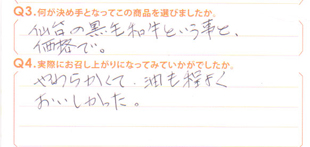 Q3.何が決め手となってこの商品を選びましたか。
仙台の黒毛和牛という事と、
価格で。
Q4.実際にお召し上がりになってみていかがでしたか。
やわらかくて、油も程よく
おいしかった。